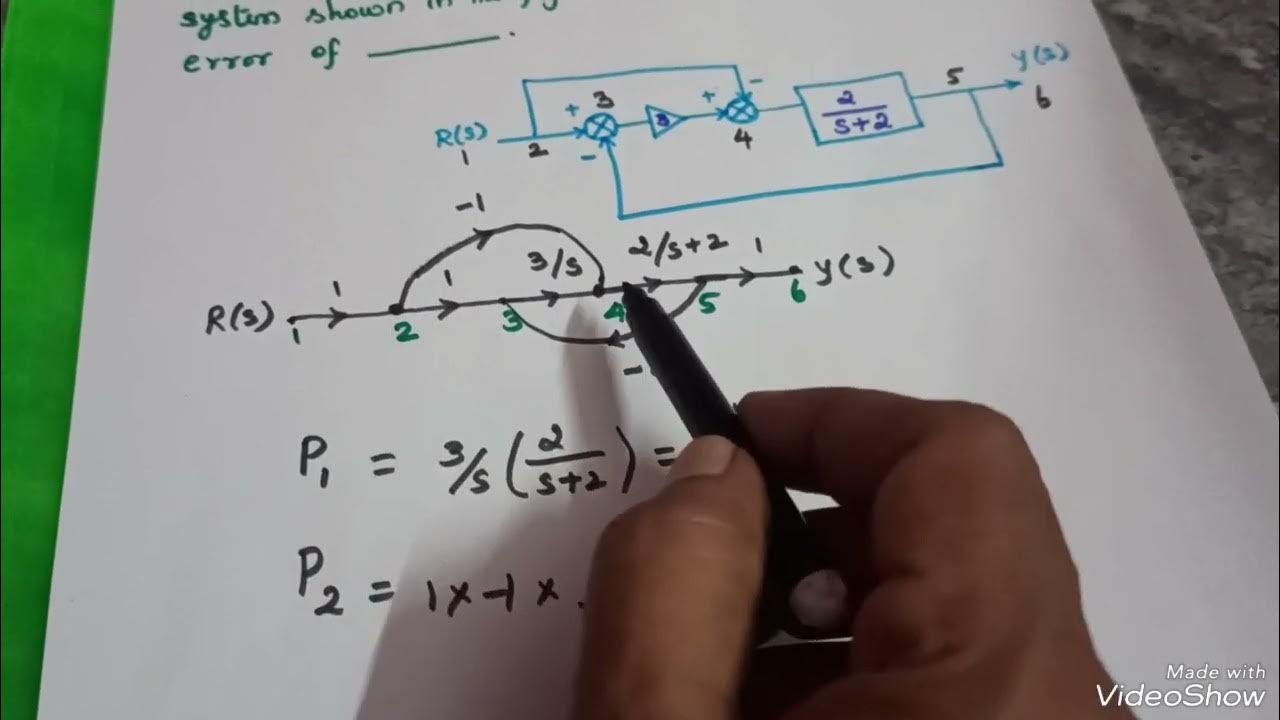 system shown in
error of ______.
R(s) 1 2 + 3 - 3 + - 4 2/s+2 5 y(s) 6
-1
R(s) 1 1 2 1 3 3/s 4 2/s+2 5 1 6 y(s)
-
P1 = 3/s (2/s+2) =
P2 = 1 x -1 x
Made with
VideoShow